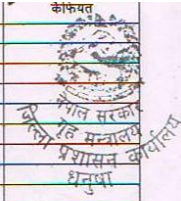 कैफियत
नेपाल सरकार
गृह मन्त्रालय
जिल्ला प्रशासन कार्यालय
धनुषा